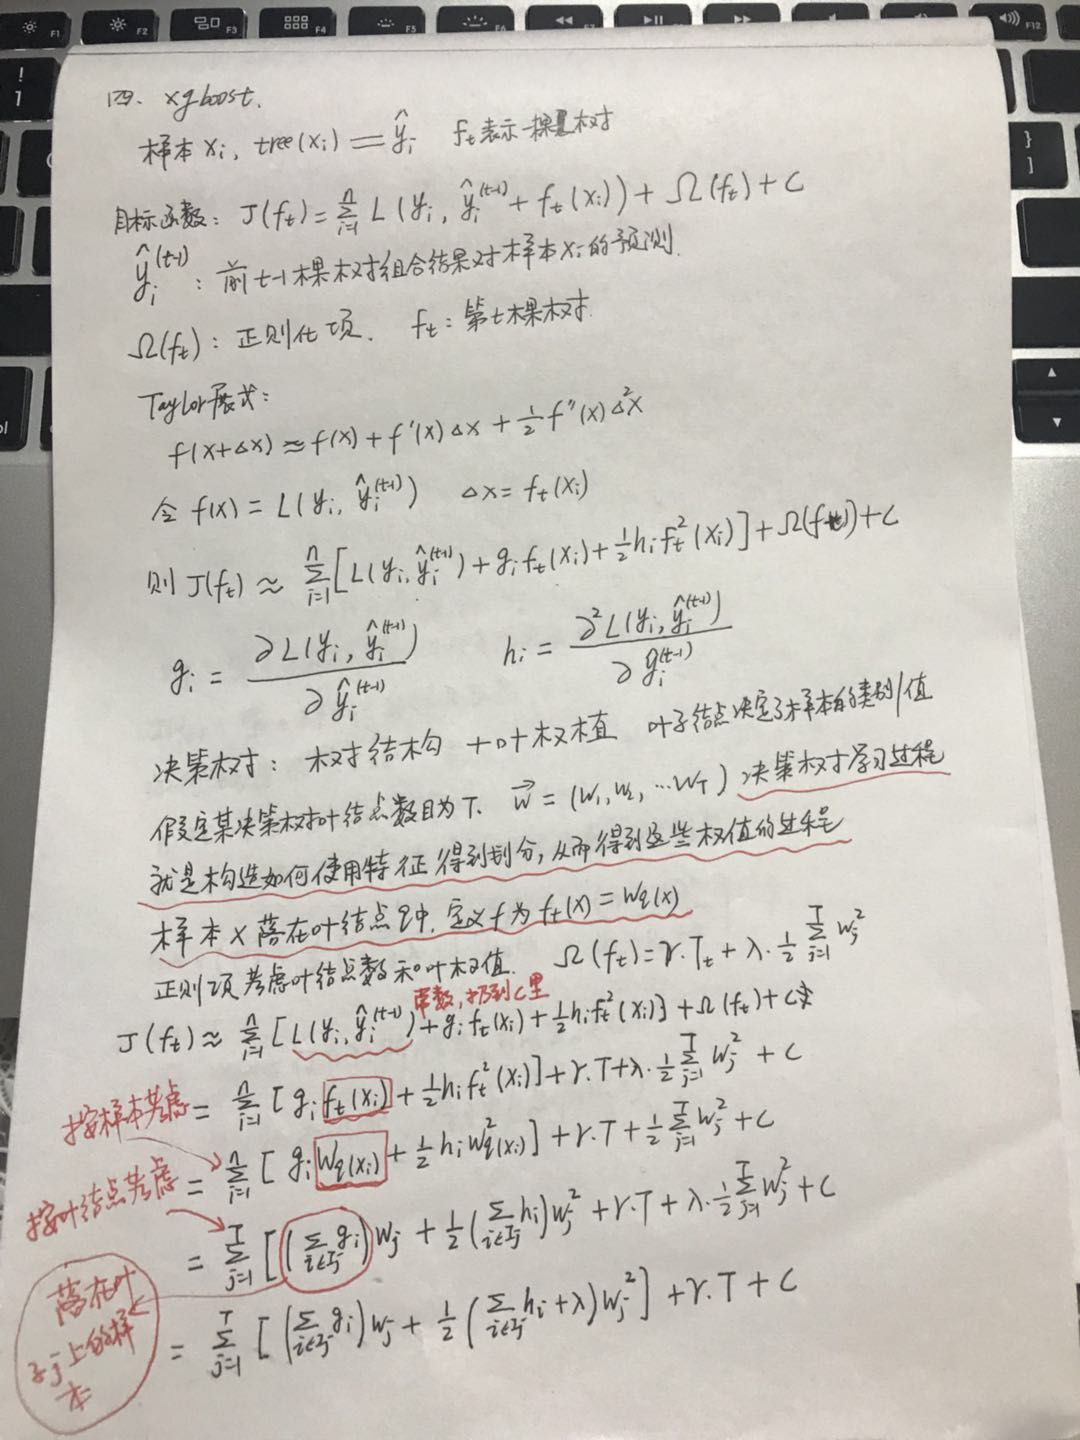 四. xgboost.
样本 xi, tree(xi) = ŷi   ft表示一棵树
目标函数: J(ft) = Σ_{i=1}^{n} L(yi, ŷi^(t-1) + ft(xi)) + Ω(ft) + C
ŷi^(t-1): 前t-1棵树组合结果对样本xi的预测.
Ω(ft): 正则化项.   ft: 第t棵树.
Taylor展式:
f(x+Δx) ≈ f(x) + f'(x)Δx + ½f''(x)Δ²x
令 f(x) = L(yi, ŷi^(t-1))   Δx = ft(xi)
则 J(ft) ≈ Σ_{i=1}^{n} [L(yi, ŷi^(t-1)) + gi ft(xi) + ½hi ft²(xi)] + Ω(ft) + C
gi = ∂L(yi, ŷi^(t-1)) / ∂ŷi^(t-1)   hi = ∂²L(yi, ŷi^(t-1)) / ∂ŷi^(t-1)
决策树: 树结构 + 叶权植   叶子结点决定了样本的类别/值
假定某决策树叶结点数目为T. w⃗ = (w1, w2, ... wT) 决策树学习过程
就是构造如何使用特征得到划分, 从而得到这些权值的过程
样本x落在叶结点q中, 定义f为 ft(x) = wq(x)
正则项考虑叶结点数和叶权值.   Ω(ft) = γ·Tt + λ·½ Σ_{j=1}^{T} wj²
常数, 扔到C里
J(ft) ≈ Σ_{i=1}^{n} [L(yi, ŷi^(t-1)) + gi ft(xi) + ½hi ft²(xi)] + Ω(ft) + C
按样本考虑 = Σ_{i=1}^{n} [gi ft(xi) + ½hi ft²(xi)] + γ·T + λ·½ Σ_{j=1}^{T} wj² + C
= Σ_{i=1}^{n} [gi wq(xi) + ½ hi wq²(xi)] + γ·T + ½ Σ_{j=1}^{T} wj² + C
按叶结点考虑
= Σ_{j=1}^{T} [(Σ_{i∈Ij} gi) wj + ½(Σ_{i∈Ij} hi) wj² + γ·T + λ·½ Σ_{j=1}^{T} wj² + C
= Σ_{j=1}^{T} [(Σ_{i∈Ij} gi) wj + ½(Σ_{i∈Ij} hi + λ) wj²] + γ·T + C
落在叶
子j上的样
本